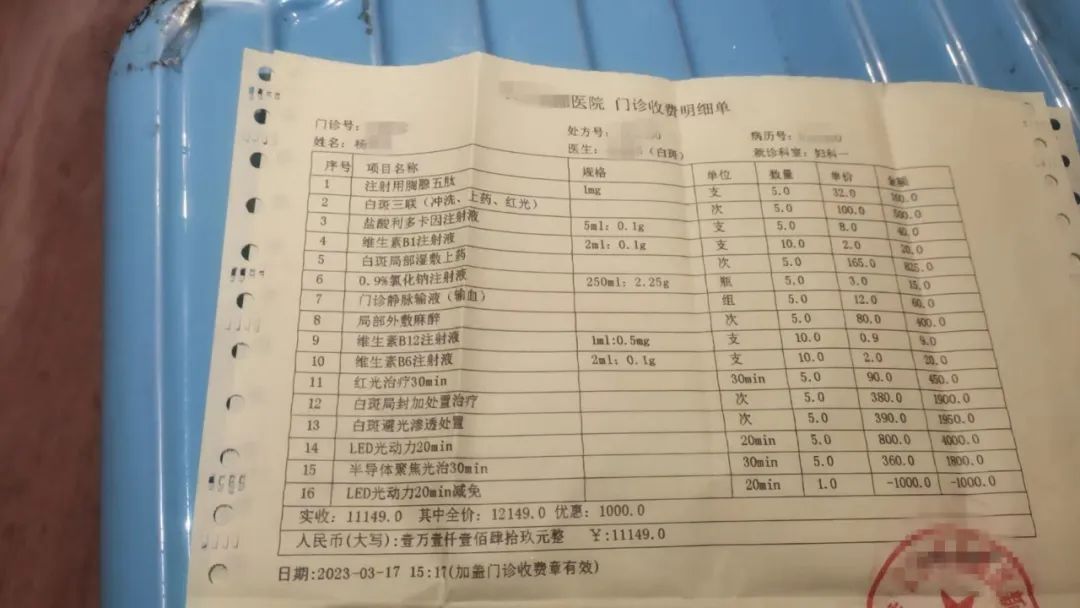 医院 门诊收费明细单
门诊号: 处方号: 病历号:
姓名: 杨 医生: (白斑) 就诊科室: 妇科一
序号 项目名称 规格 单位 数量 单价 金额
1 注射用胸腺五肽 1mg 支 5.0 32.0 160.0
2 白斑三联(冲洗、上药、红光) 次 5.0 100.0 500.0
3 盐酸利多卡因注射液 5ml: 0.1g 支 5.0 8.0 40.0
4 维生素B1注射液 2ml: 0.1g 支 10.0 2.0 20.0
5 白斑局部湿敷上药 次 5.0 165.0 825.0
6 0.9%氯化钠注射液 250ml: 2.25g 瓶 5.0 3.0 15.0
7 门诊静脉输液(输血) 组 5.0 12.0 60.0
8 局部外敷麻醉 次 5.0 80.0 400.0
9 维生素B12注射液 1ml:0.5mg 支 10.0 0.9 9.0
10 维生素B6注射液 2ml: 0.1g 支 10.0 2.0 20.0
11 红光治疗30min 30min 5.0 90.0 450.0
12 白斑局封加处置治疗 次 5.0 380.0 1900.0
13 白斑避光渗透处置 次 5.0 390.0 1950.0
14 LED光动力20min 20min 5.0 800.0 4000.0
15 半导体聚焦光治30min 30min 5.0 360.0 1800.0
16 LED光动力20min减免 20min 1.0 -1000.0 -1000.0
实收: 11149.0 其中全价: 12149.0 优惠: 1000.0
人民币(大写): 壹万壹仟壹佰肆拾玖元整 ￥: 11149.0
日期:2023-03-17 15:17(加盖门诊收费章有效)